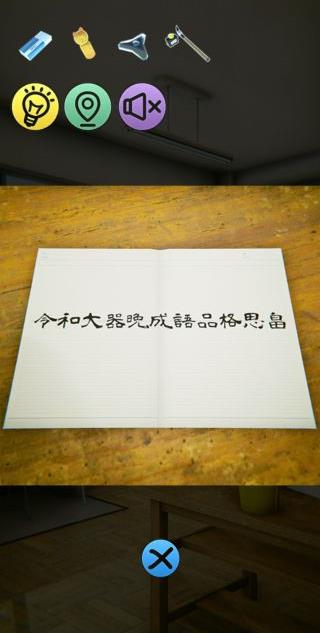 令和大器晩成語品格思畠